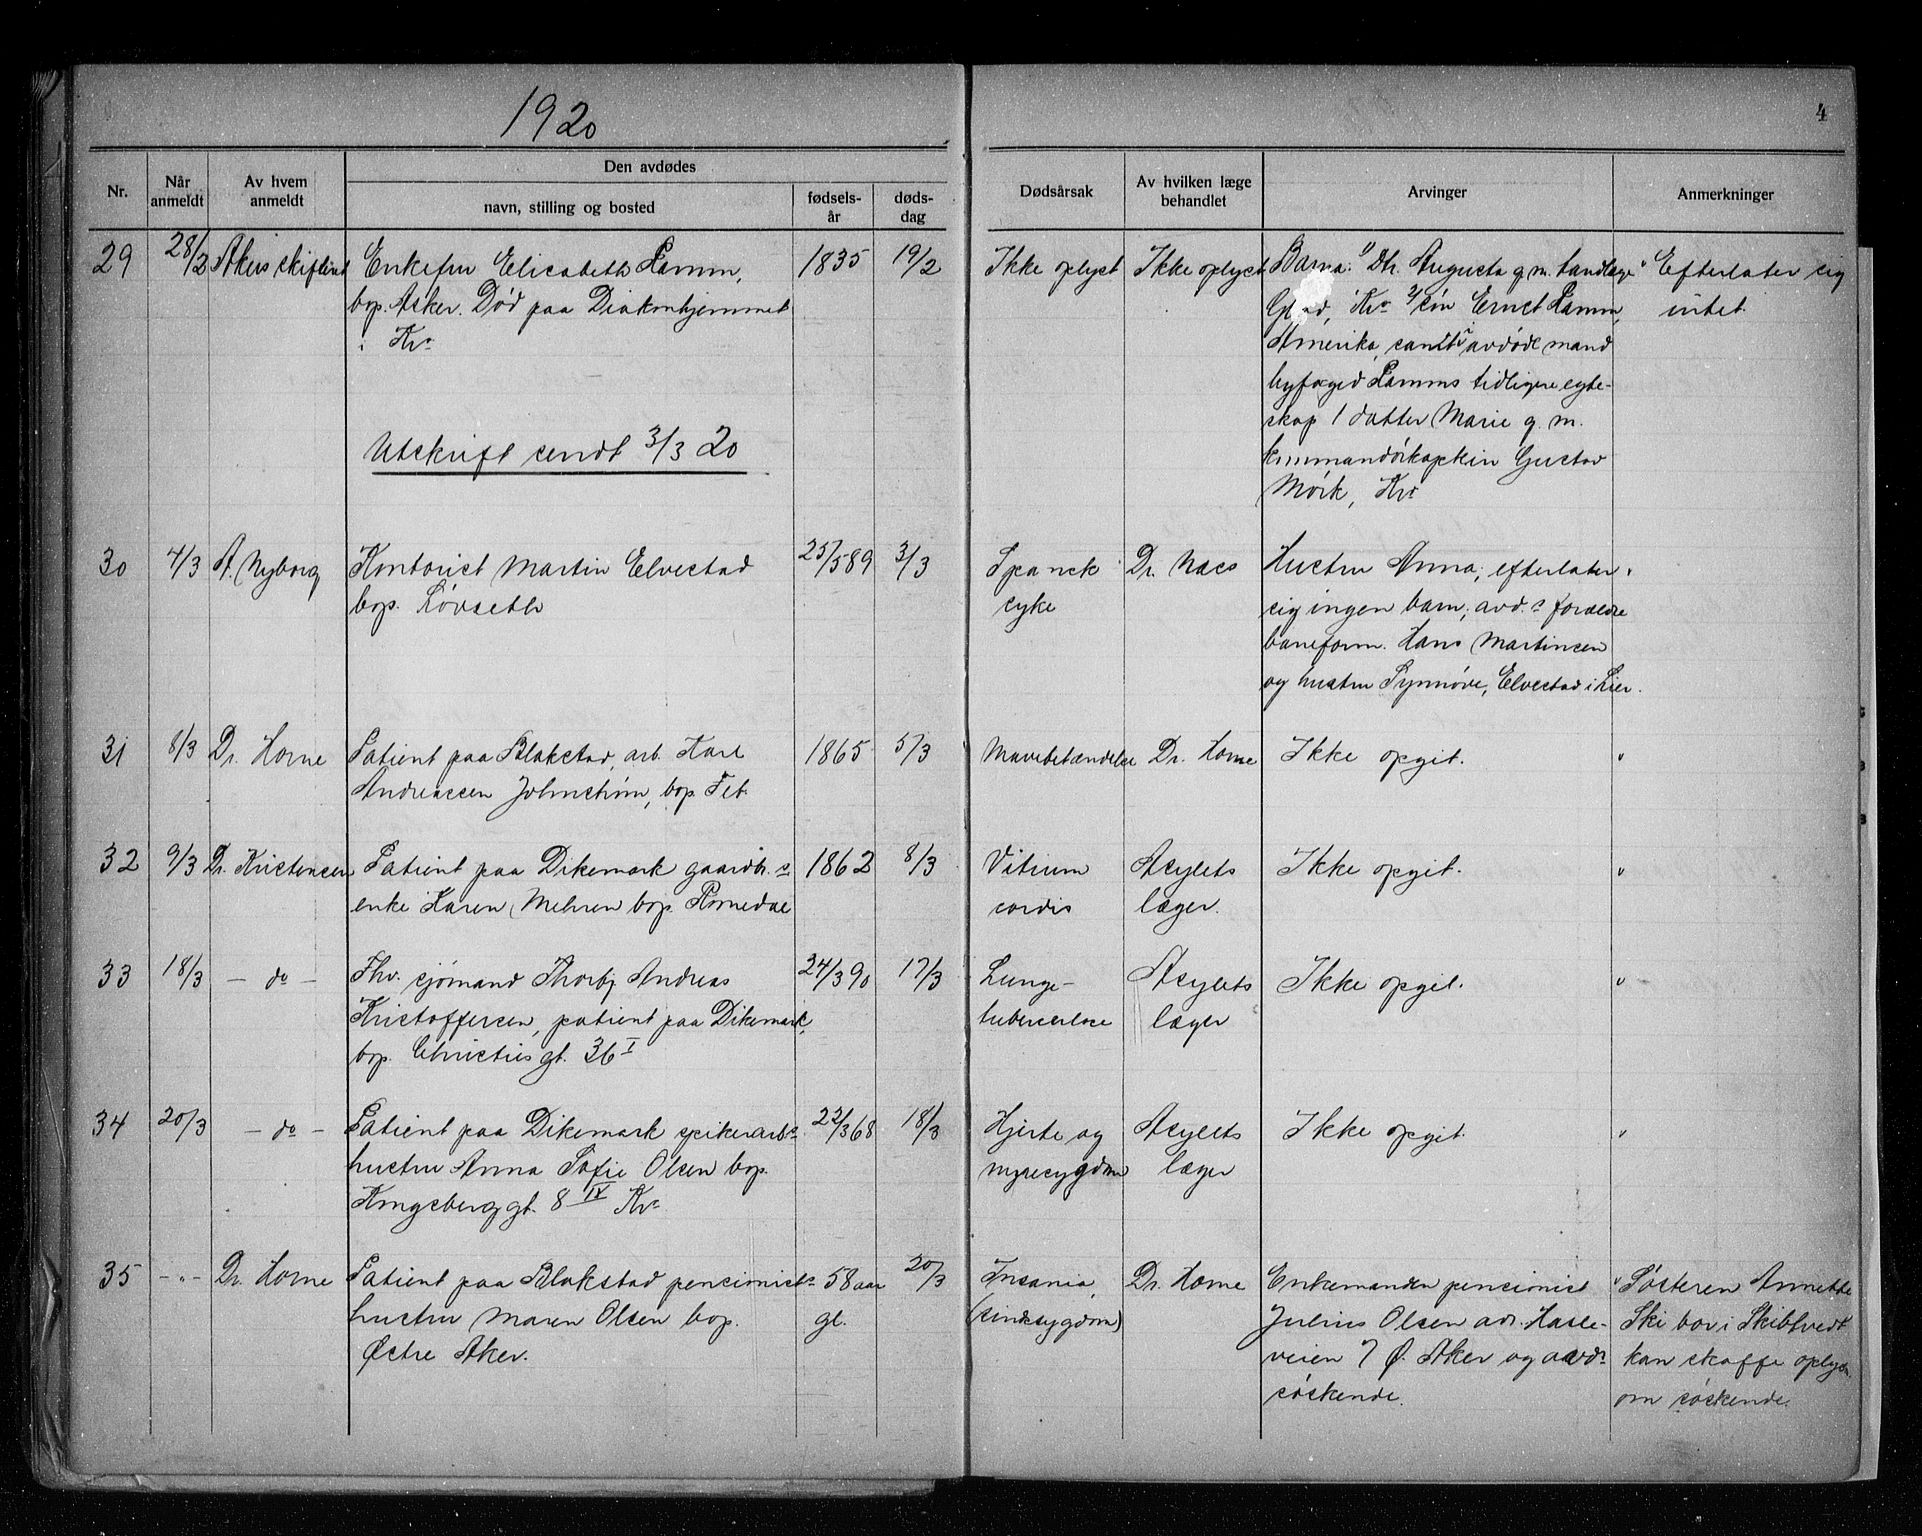 1920
4
Nr.
Når anmeldt
Av hvem anmeldt
Den avdødes
navn, stilling og bosted
fødsels-år
døds-dag
Dødsårsak
Av hvilken læge behandlet
Arvinger
Anmerkninger
29
28/2
Akers skifteret
Enkefru Elisabeth Lamm,
bop. Asker. Død paa Diakonhjemmet
i Kra
1835
19/2
Ikke oplyst
Ikke oplyst
Barna: 1) Dtr. Augusta g. m. tandlæge
Kra 2/ søn Ernst Lamm,
Amerika, samt i avdøde mand
byfoged Lamms tidligere egte-
skap 1 datter Marie g. m.
kommandørkaptein Gustav
Mørk, Kra
" Efterlater sig
intet.
Utskrift sendt 3/3 20
30
4/3
A. Nyborg
Kontorist Martin Elvestad
bop. Løvseth
25/5 89
3/3
Spansk
syke
Dr. Naes
Hustru Anna, efterlater
sig ingen barn; avd.s forældre
baneform. Hans Martinsen
og hustru Synnøve, Elvestad i Lier.
"
31
8/3
Dr. Horne
Patient paa Blakstad, arb. Karl
Andreassen Johnstrøm, bop. Fet.
1865
5/3
Mavebetændelse
Dr. Horne
Ikke opgit.
"
32
9/3
Dr. Kristensen
Patient paa Dikemark gaardbr.s
enke Karen Mehren bop. Romedal
1862
8/3
Vitium
cordis
Asylets
læger.
Ikke opgit.
"
33
18/3
- do -
Fhv. sjømand Thorbj. Andreas
Kristoffersen, patient paa Dikemark,
bop. Christies gt. 36 I
24/3 90
17/3
Lunge-
tuberculose
Asylets
læger
Ikke opgit.
"
34
20/3
- do -
Patient paa Dikemark spikerarb.s
hustru Anna Sofie Olsen bop.
Kongsberggt. 8 IV Kra
22/3 68
18/3
Hjerte og
nyresygdom
Asylets
læger
Ikke opgit.
"
35
- " -
Dr. Horne
Patient paa Blakstad pensionists
hustru Maren Olsen bop.
Østre Aker.
58 aar
gl.
20/3
Insania,
(sindsygdom)
Dr. Horne
Enkemanden pensionist
Julius Olsen adr. Hasle-
veien 7 Ø. Aker og avds
søskende.
" Søsteren Annette
Ski bor i Skibtvedt
kan skaffe oplysn.
om søskende.